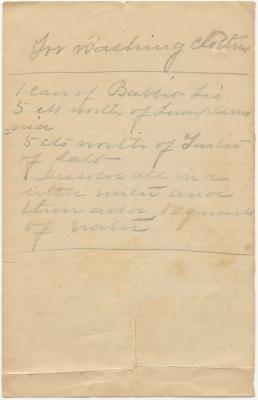 For Washing Clothes
1 can of Babbit Lie
5 cts worth of Lump Amo
nia
5 cts worth of Tartu
of salt
Dissolve all in a
little water and
then add 10 quarts
of water